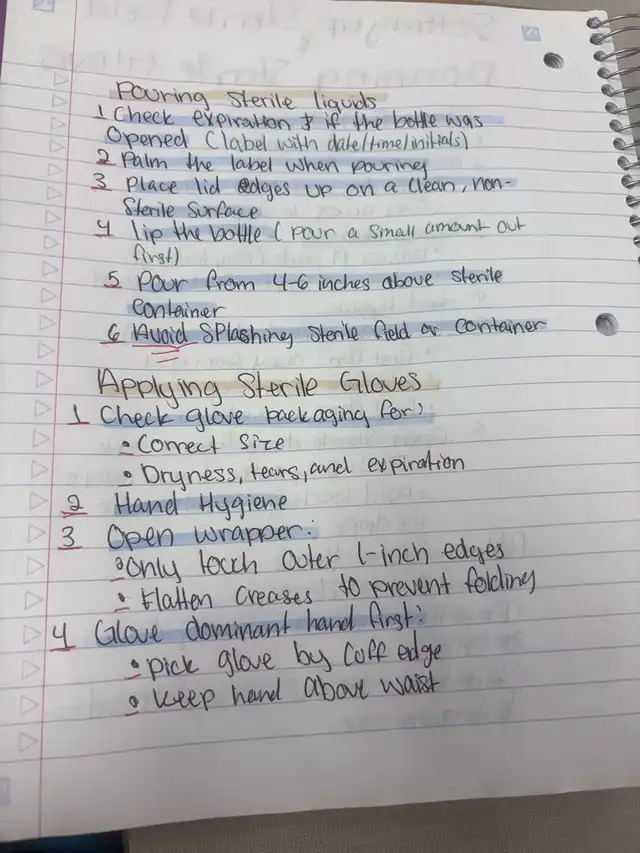 Pouring Sterile liquids
1 Check expiration & if the bottle was
Opened (label with date/time/initials)
2 Palm the label when pouring
3 Place lid edges up on a clean, non-
Sterile surface
4 Lip the bottle (pour a small amount out
first)
5 Pour from 4-6 inches above sterile
container
6 Avoid splashing sterile field or container
Applying Sterile Gloves
1 Check glove packaging for:
• Correct size
• Dryness, tears, and expiration
2 Hand Hygiene
3 Open wrapper:
• Only touch outer 1-inch edges
• Flatten creases to prevent folding
4 Glove dominant hand first:
• pick glove by cuff edge
• Keep hand above waist